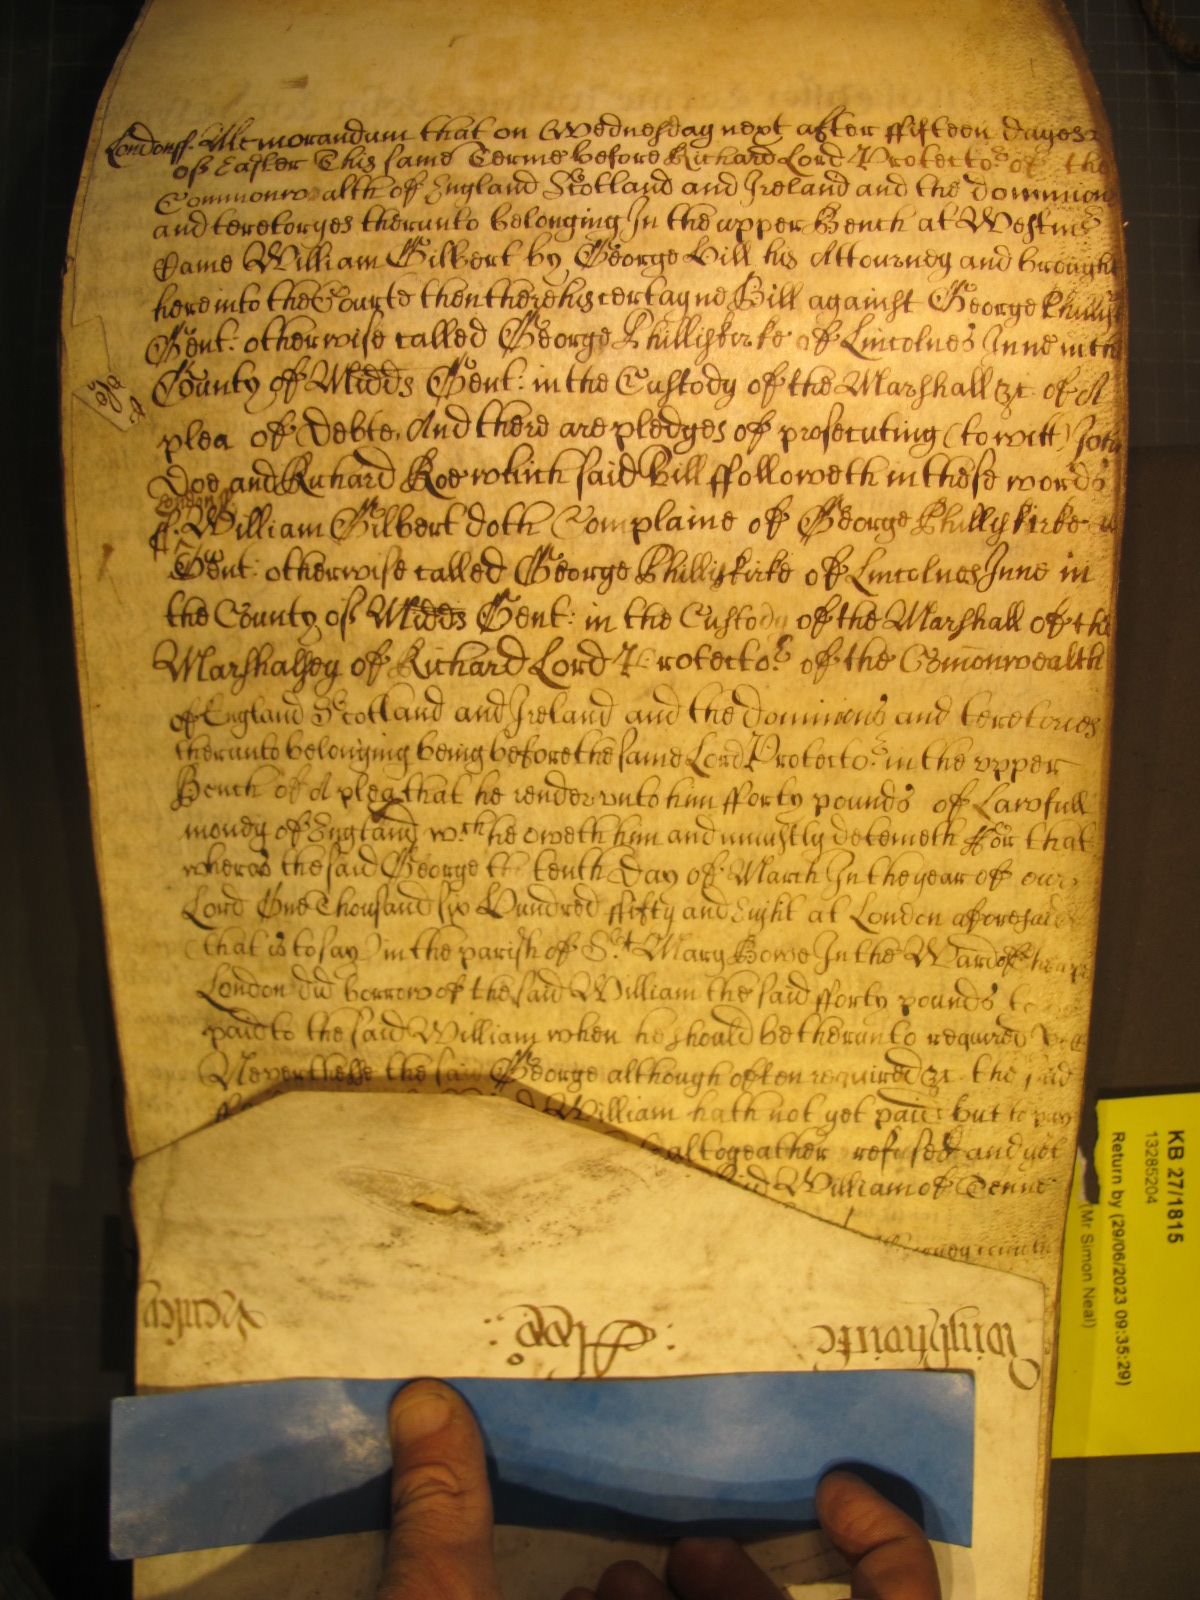 Londonff. Memorandum that on Wednesday next after ffifteen dayes
of Easter This same Terme before Richard Lord Protector of the
Commonwealth of England Scotland and Ireland and the dominions
and teretoryes therunto belonging In the upper Bench at Westmr
Came William Gilbert by George Hill his Attourney and brought
here into the Courte then there his certayne Bill against George Phillis
Gent: otherwise called George Philliskirke of Lincolnes Inne in the
County of Midds Gent: in the Custody of the Marshall &c of A
plea of Debte, And there are pledges of prosecuting (to witt) John
Doe and Richard Roe which said Bill ffolloweth in these words
London
ff. William Gilbert doth Complaine of George Phillyskirke
Gent: otherwise called George Phillyskirke of Lincolnes Inne in
the County of Midds Gent: in the Custody of the Marshall of the
Marshalsey of Richard Lord Protector of the Comonwealth
of England Scotland and Ireland and the dominions and teretories
therunto belonging being before the same Lord Protector in the vpper
Bench of A plea that he render vnto him fforty pounds of Lawfull
money of England wch he oweth him and uniustly deteineth ffor that
wheras the said George the tenth Day of March In the year of our
Lord One Thousand six Hundred ffifty and Eight at London aforesaid
(that is to say) in the parish of St Mary Bowe In the Ward of
London did borrow of the said William the said fforty pounds to
paid to the said William when he should be therunto required
Neverthesse the said George although often required &c. the said
William hath not yet paid but to pay
altogeather refused and yet
said William of Tenne
KB 27/1815
13285204
Return by (29/06/2023 09:35:29)
(Mr Simon Neal)